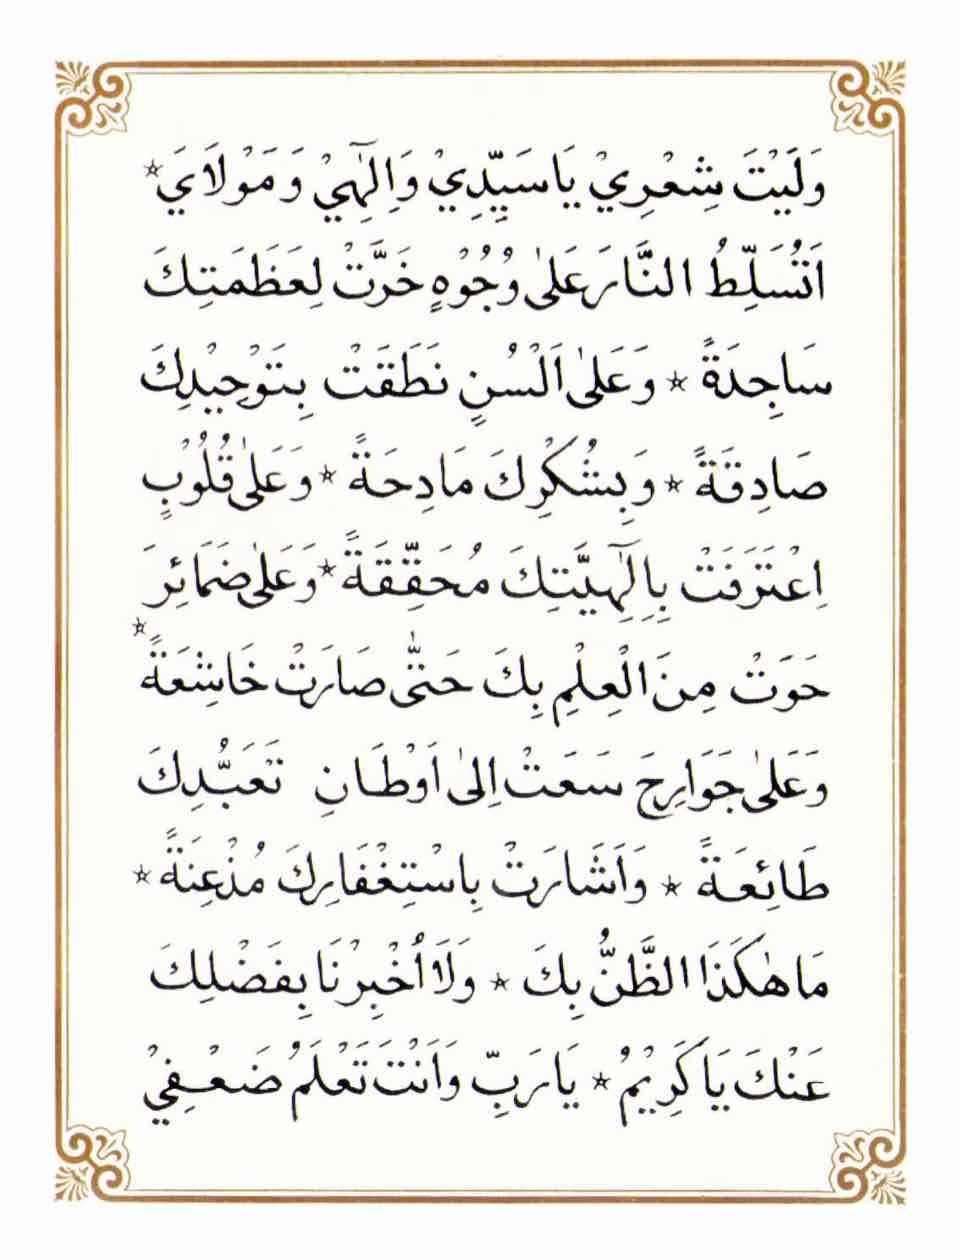 وَلَيْتَ شِعْرِيْ يَا سَيِّدِيْ وَاِلٰهِيْ وَمَوْلَايَ ☆
اَتُسَلِّطُ النَّارَ عَلٰى وُجُوْهٍ خَرَّتْ لِعَظَمَتِكَ
سَاجِدَةً ☆ وَعَلٰى اَلْسُنٍ نَطَقَتْ بِتَوْحِيْدِكَ
صَادِقَةً ☆ وَبِشُكْرِكَ مَادِحَةً ☆ وَعَلٰى قُلُوْبٍ
اِعْتَرَفَتْ بِاِلٰهِيَّتِكَ مُحَقِّقَةً ☆ وَعَلٰى ضَمَائِرَ
حَوَتْ مِنَ الْعِلْمِ بِكَ حَتّٰى صَارَتْ خَاشِعَةً ☆
وَعَلٰى جَوَارِحَ سَعَتْ اِلٰى اَوْطَانِ تَعَبُّدِكَ
طَائِعَةً ☆ وَاَشَارَتْ بِاسْتِغْفَارِكَ مُذْعِنَةً ☆
مَا هٰكَذَا الظَّنُّ بِكَ ☆ وَلَا اُخْبِرْنَا بِفَضْلِكَ
عَنْكَ يَا كَرِيْمُ ☆ يَا رَبِّ وَاَنْتَ تَعْلَمُ ضَعْفِيْ